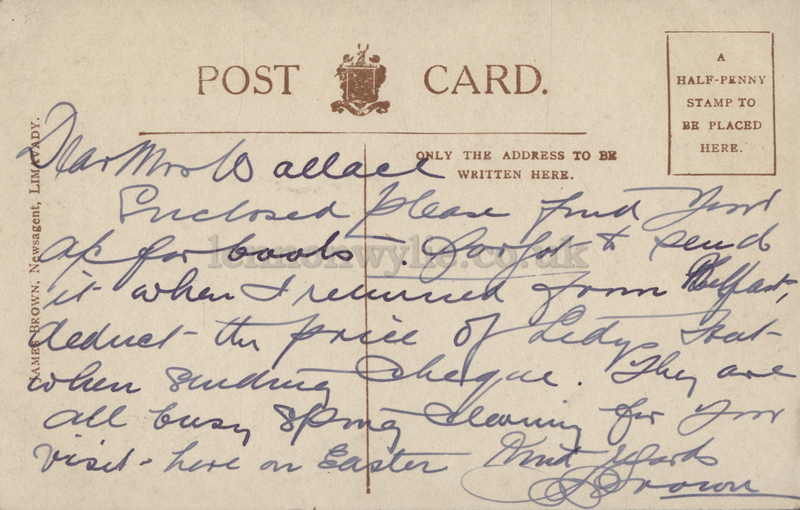 POST CARD.
A
HALF-PENNY
STAMP TO
BE PLACED
HERE.
ONLY THE ADDRESS TO BE
WRITTEN HERE.
JAMES BROWN, Newsagent, LIMAVADY.
Dear Mrs Wallace
Enclosed please find your
a/c for books. I forgot to send
it when I returned from Belfast,
deduct the price of Hat
when sending cheque. They are
all busy spring cleaning for your
visit here on Easter Kind regards
Brown
lennonwylie.co.uk